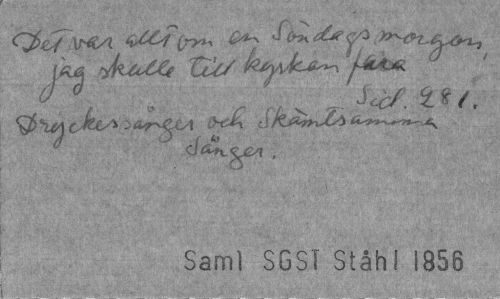 Det var allt om en Söndagsmorgon,
jag skulle till kyrkan fara
Sid. 281.
Dryckessånger och Skämtsamma
Sånger.
Saml SGST Ståhl 1856